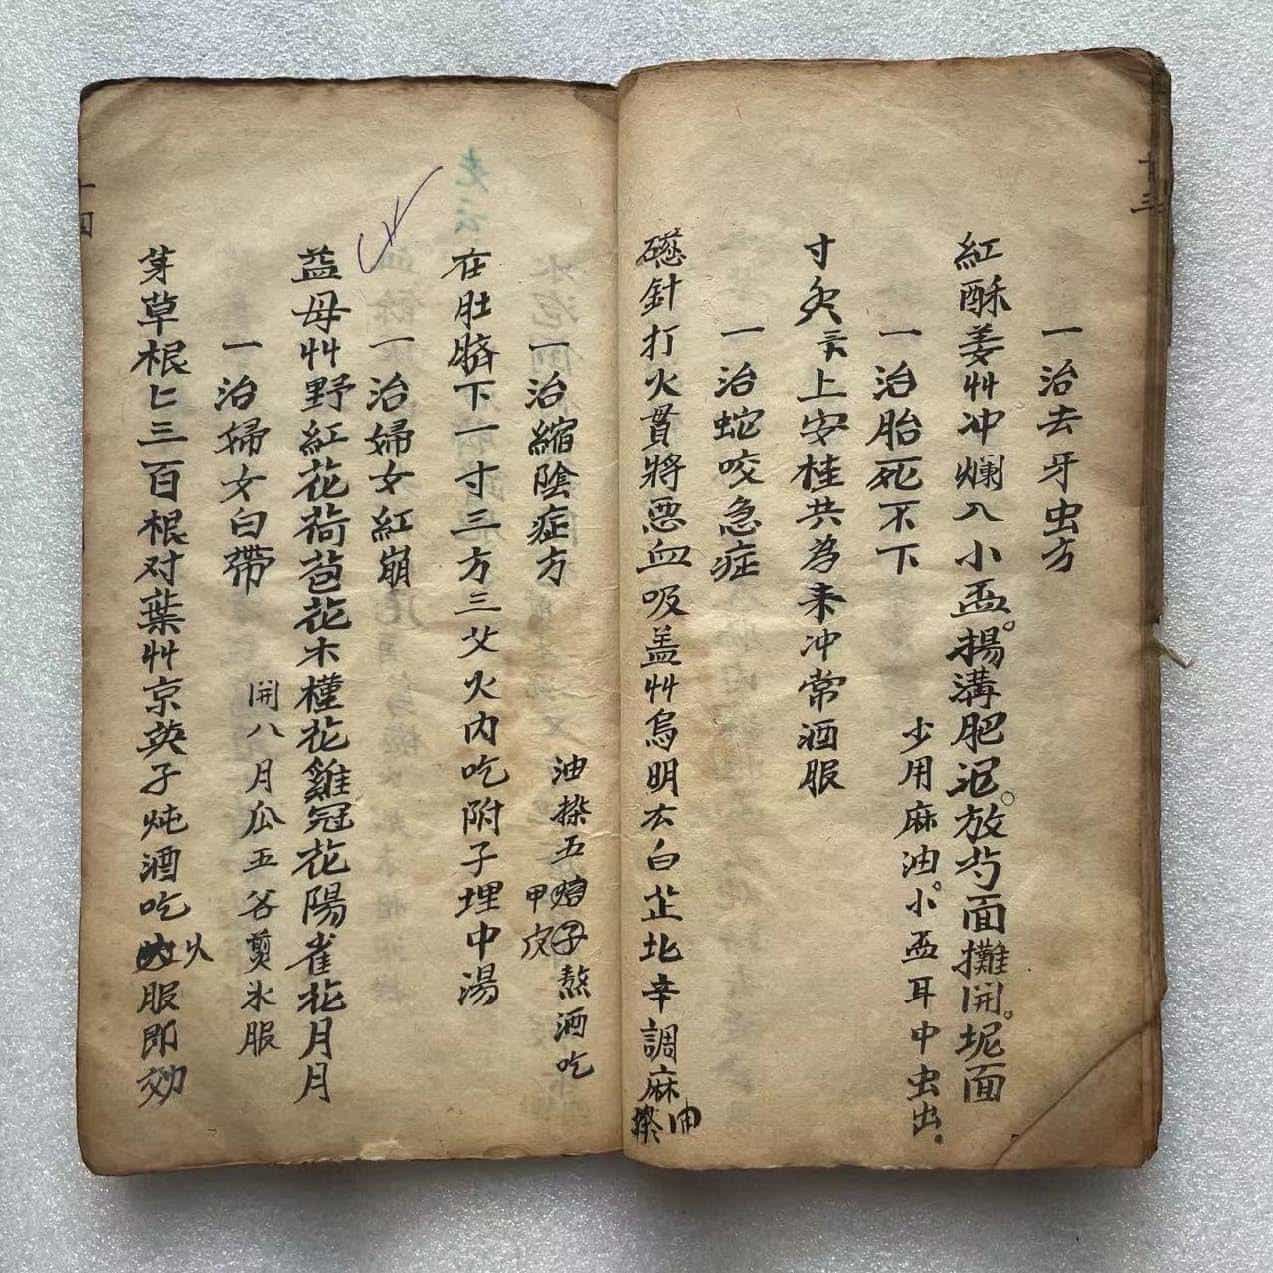 一治去牙虫方
紅酥姜艸冲爛入小盃。揚溝肥泥。放芍面攤開。坭面
少用麻油。小盃耳中虫出。
一治胎死不下
寸炙上安桂共為末冲常酒服
一治蛇咬急症
磁針打火貫將惡血吸盖艸烏明玄白芷北辛調麻油搽
一治縮陰症方
油搽五焙子熬酒吃
甲皮
在肚臍下一寸三方三父火內吃附子埋中湯
一治婦女紅崩
益母艸野紅花荷苞花木槿花雞冠花陽雀花月月
開八月瓜五谷剪氷服
一治婦女白帶
芽草根匕三百根对葉艸京英子炖酒吃火服即効
十四